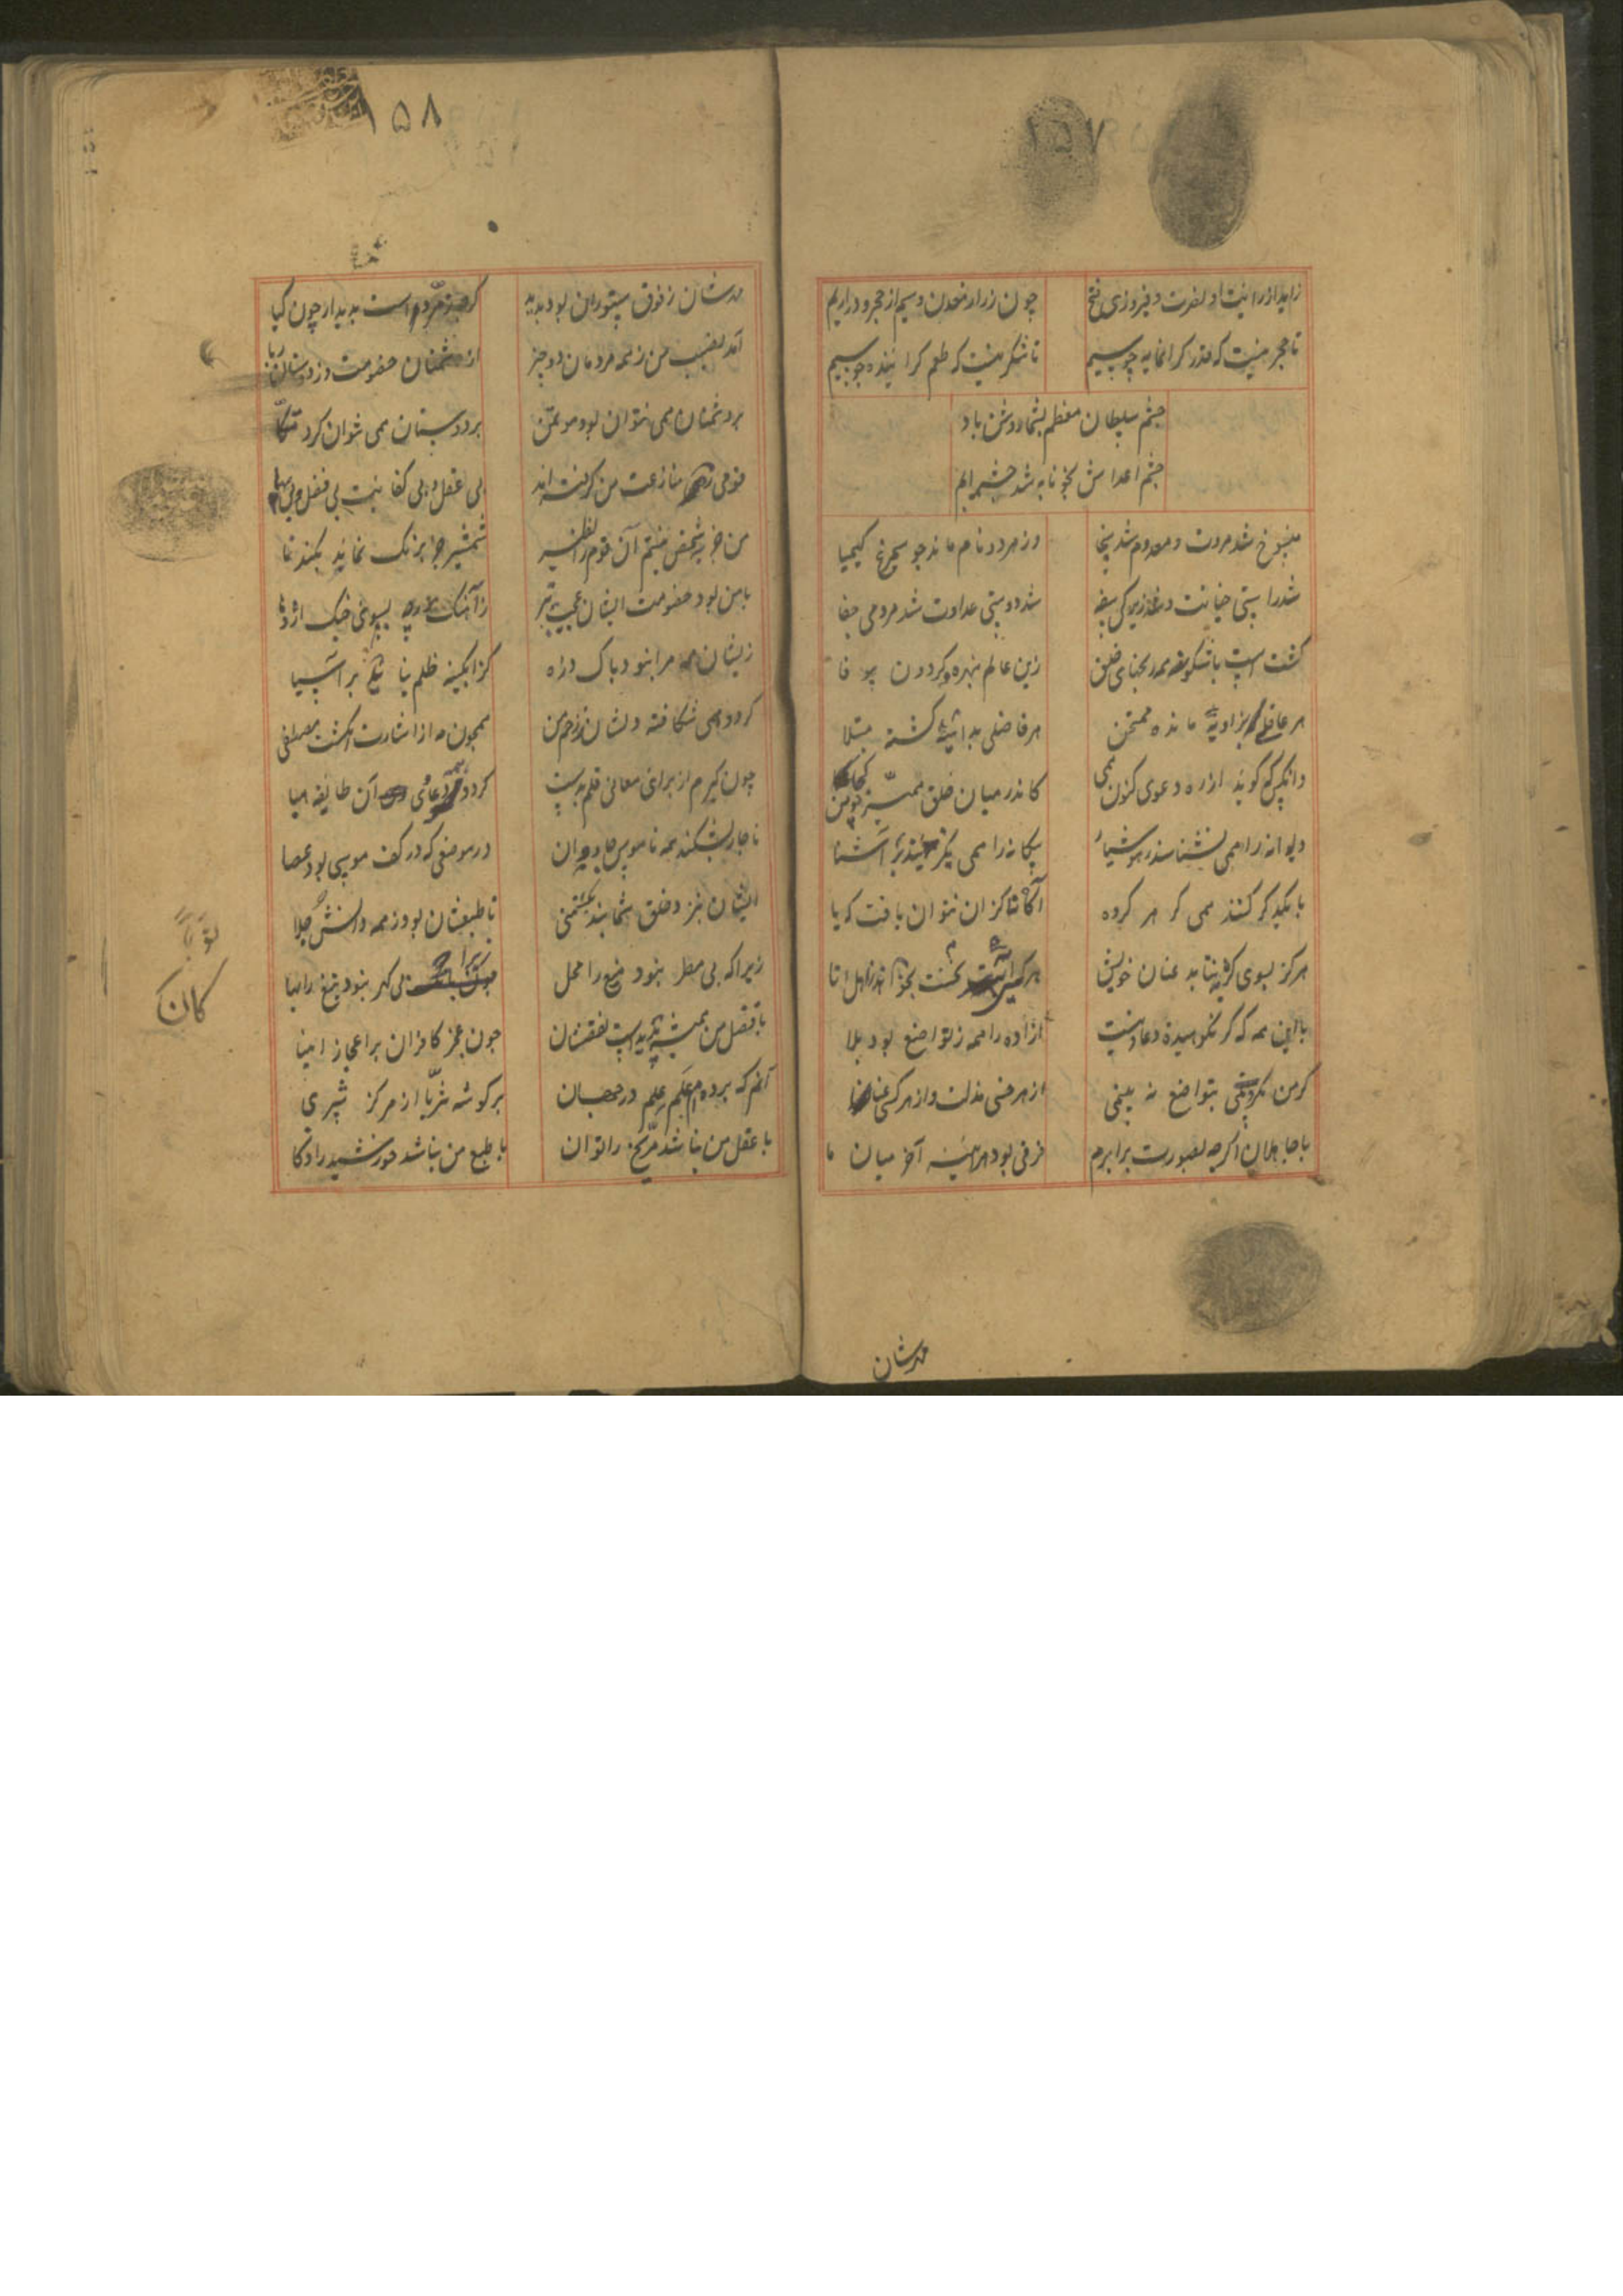 ۱۵۷
زاید از رایت او نصرت و فیروزی و فتح
چون زر از معدن و سیم از حجر و در از یم
تا حجر نیست که قدر گرانمایه چو سیم
تا شکر نیست که طعم گزاینده چو سم
چشم سلطان معظم بشما روشن باد
چشم اعداش بخونابه شد چشم الم
منسوخ شد مروت و معدوم شد سخا
وز هر دو نام ماند چو سیمرغ و کیمیا
شد راستی خیانت و شد زیرکی سفه
شد دوستی عداوت شد مردمی جفا
گشت است باشگونه همه رسمهای خلق
زین عالم نبهره و گردون بیوفا
هر عاقلی بزاویه مانده ممتحن
هر فاضلی بداهیه گشته مبتلا
وانکس که گوید از ره دعوی کنون همی
کاندر میان خلق ممیز چو من کجا
دیوانه را همی نشناسد ز هوشیار
بیگانه را همی بگزیند بر آشنا
با یکدگر کنند همی کبر هر گروه
آگاه نا کزان نتوان یافت کبریا
هرگز بسوی کبر نتابد عنان خویش
هرکه آیتی نخست بخواند ز هل اتی
با این همه که کبر نکوهیده عادتیست
آزاده را همه ز تواضع بود بلا
گر من نکوشمی بتواضع نه بینمی
از هر خسی مذلت و از هر کسی عنا
با جاهلان اگرچه بصورت برابرم
فرقی بود هرآینه آخر میان ما
مدشان
۱۵۸
مدشان ز فوق ستوران بود پدید
گرچه ز مردم است پدیدار چون گیا
آمد نصیب من ز همه مردمان دو چیز
از دشمنان خصومت و از دوستان ریا
بر دشمنان همی نتوان بود موتمن
بر دوستان همی نتوان کرد متکا
قومی ره منازعت من گرفته اند
بی عقل و بی کفایت و بی فضل و بی دها
من جز بشخص نیستم آن قوم را نظیر
شمشیر جز برنگ نماند بگندنا
با من بود خصومت ایشان عجیب تر
ز آهنگ مورچه بسوی جنگ اژدها
زیشان همه مرا نبود باک ذره
کز آبگینه ظلم نیاید بر آسیا
گردد همی شکافته دلشان ز خشم من
همچون مه از اشارت انگشت مصطفی
چون گیرم از برای معانی قلم بدست
گردد همه دعاوی آن طایفه هبا
ناچار بشکند همه ناموس جادوان
در موضعی که در کف موسی بود عصا
ایشان بنزد خلق نیابند رتبتی
تا طبعشان بود ز همه دانشی جلا
زیرا که بی مطر نبود میغ را محل
زیرا که بی گهر نبود تیغ را بها
با فضل من همیشه پدید است نقصشان
چون عجز کافران بر اعجاز انبیا
آنم که برده ام علم علم در جهان
بر گوشه ثریا از مرکز ثری
با عقل من نباشد مریخ را توان
با طبع من نباشد خورشید را ذکا
کان